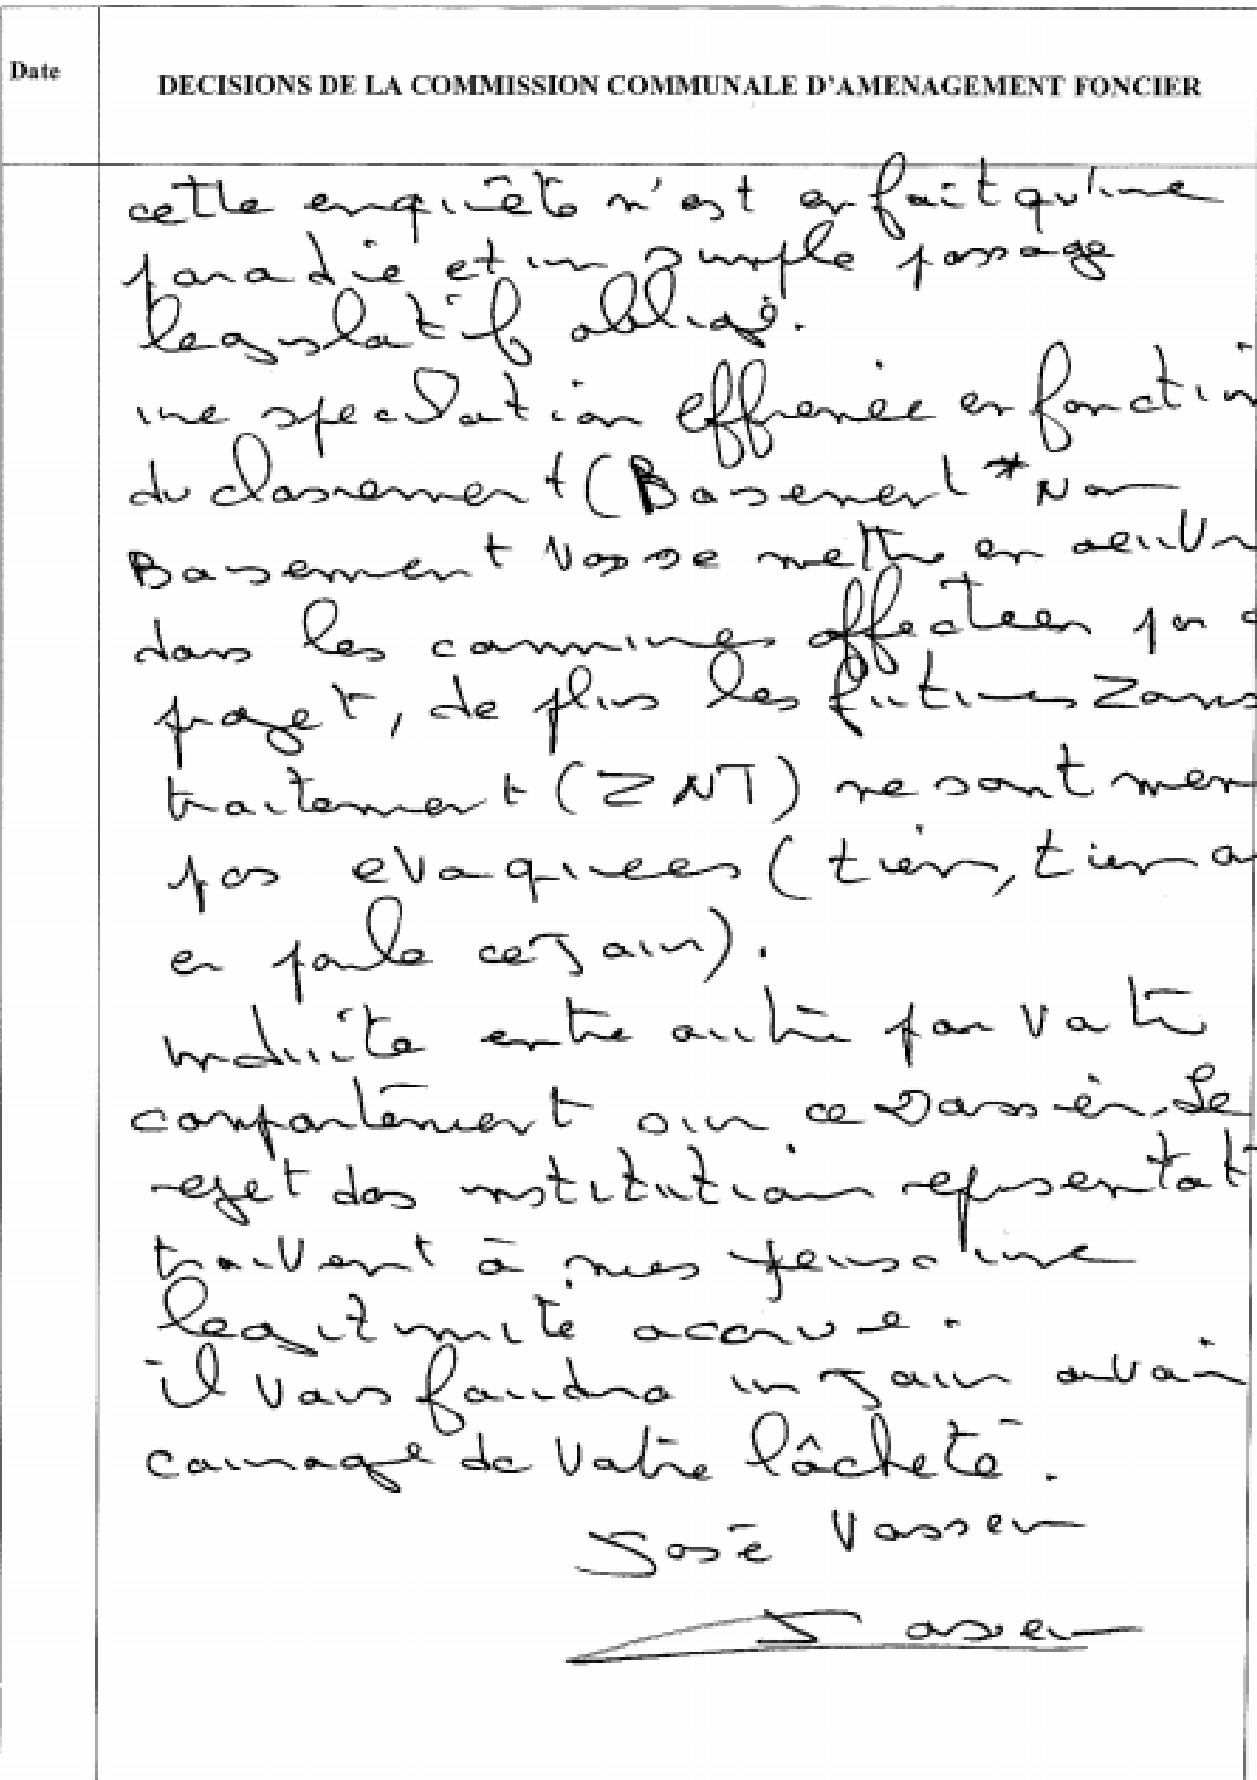 Date
DECISIONS DE LA COMMISSION COMMUNALE D'AMENAGEMENT FONCIER
cette enquête n'est en fait qu'une
parodie et un simple passage
legislatif obligé.
une speculation effrenée en fonction
du classement (Basement * Non
Basement va se mettre en oeuvre
dans les communes affectees par c
projet, de plus les futures Zones
traitement (ZNT) ne sont mem
pas evoquees (tiens, tiens on
en parle ce jour).
induite entre autre par votre
comportement sur ce Dossier. Le
rejet des institutions representat
trouvent à mes yeux une
legitimité accrue.
il vous faudra un jour avoir
courage de votre lâcheté.
José Vasseur
Vasseur